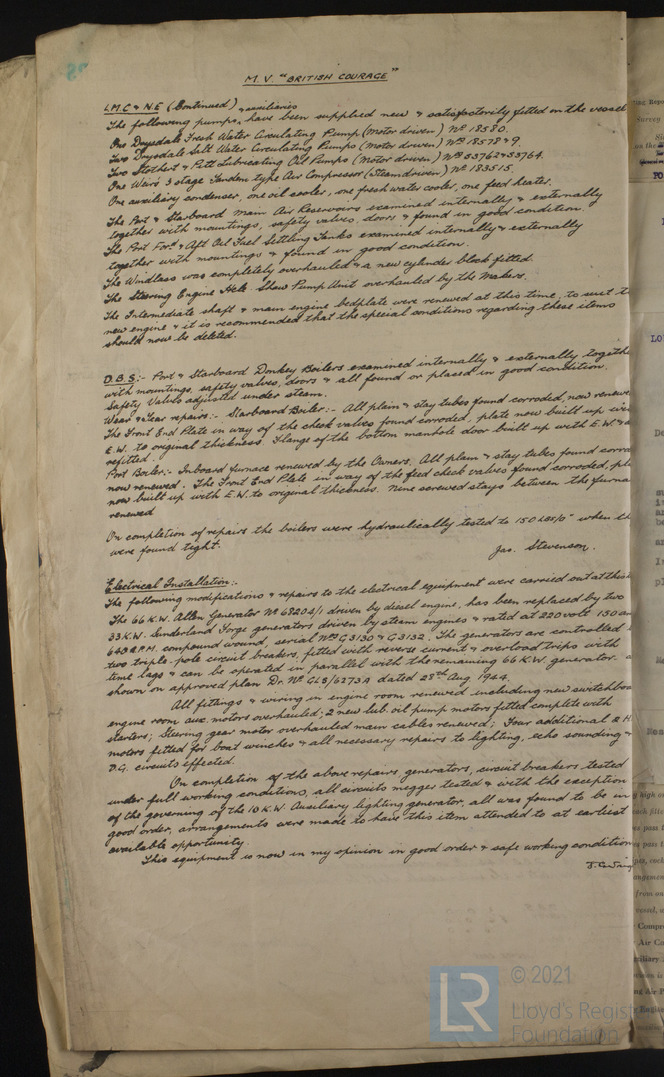 M.V. "BRITISH COURAGE"
L.M.C & N.E (Continued) & auxiliaries
The following pumps, have been supplied new & satisfactorily fitted on the vessel
One Drysdale Fresh Water Circulating Pump (Motor driven) Nº 18580.
Two Drysdale Salt Water Circulating Pumps (Motor driven) Nº 18578 & 9
Two Stothert & Pitt Lubricating Oil Pumps (Motor driven) Nº 55762 & 53764.
One Weirs 3 stage Tandem type Air Compressor (Steam driven) Nº 183515.
One auxiliary condenser, one oil cooler, one fresh water cooler, one feed heater.
The Port & Starboard Main Air Reservoirs examined internally & externally
together with mountings, safety valves, doors & found in good condition.
The Port For'd & Aft Oil Fuel Settling Tanks examined internally & externally
together with mountings & found in good condition.
The Windlass was completely overhauled & a new cylinder block fitted.
The Steering Engine Hele Shaw Pump Unit overhauled by the Makers.
The Intermediate shaft & main engine bedplate were renewed at this time, to suit
new engine & it is recommended that the special conditions regarding these items
should now be deleted.
D.B.S:- Port & Starboard Donkey Boilers examined internally & externally togethe
with mountings, safety valves, doors & all found or placed in good condition.
Safety Valves adjusted under steam.
Wear & Tear repairs:- Starboard Boiler:- All plain & stay tubes found corroded, now renewe
The Front End Plate in way of the check valves found corroded, plate now built up
E.W. to original thickness. Flange of the bottom manhole door built up with E.W. &
refitted.
Port Boiler:- Inboard furnace renewed by the Owners. All plain & stay tubes found corro
now renewed. The Front End Plate in way of the feed check valves found corroded,
now built up with E.W. to original thickness. Nine screwed stays between the furna
renewed
On completion of repairs the boilers were hydraulically tested to 150 LBS/□" when
were found tight.
Jas. Stevenson.
Electrical Installation:-
The following modifications & repairs to the electrical equipment were carried out at this
The 66 K.W. Allen Generator Nº 68204/1 driven by diesel engine, has been replaced by two
33 K.W. Sunderland Forge generators driven by steam engines & rated at 220 volt 150
640 R.P.M. compound wound, serial Nºs G3130 & G3132. The generators are controlled
two triple pole circuit breakers, fitted with reverse current & overload trips with
time lags & can be operated in parallel with the remaining 66 K.W. generator.
shown on approved plan Dr. Nº GLB/6273A dated 28th Aug. 1944.
All fittings & wiring in engine room renewed including new switchboa
engine room aux. motors overhauled; 2 new lub. oil pump motors fitted complete with
starters; Steering gear motor overhauled main cables renewed; Four additional 2 H
motors fitted for boat winches & all necessary repairs to lighting, echo sounding &
D.G. circuits effected.
On completion of the above repairs, generators, circuit breakers tested
under full working conditions, all circuits megger tested & with the exception
of the governing of the 10 K.W. Auxiliary lighting generator, all was found to be in
good order, arrangements were made to have this item attended to at earliest
available opportunity.
This equipment is now in my opinion in good order & safe working condition
LR
© 2021
Lloyd's Register
Foundation